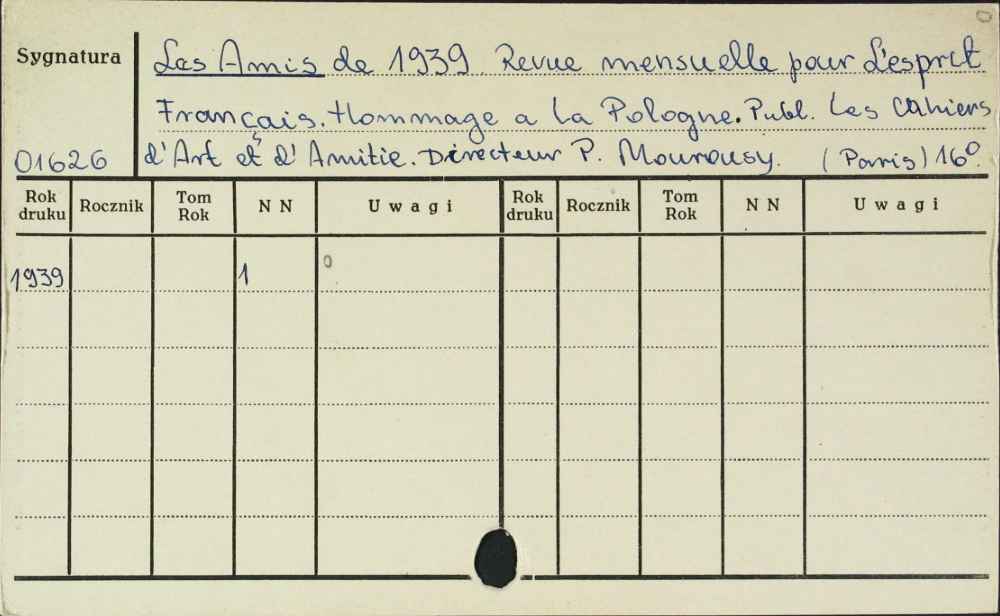 Sygnatura
Les Amis de 1939. Revue mensuelle pour L'esprit
Français. Hommage a La Pologne. Publ. Les Cahiers
01626
d'Art et d' Amitie. Directeur P. Mourousy. (Paris) 16°.
Rok druku Rocznik Tom Rok NN Uwagi Rok druku Rocznik Tom Rok NN Uwagi
1939 1 0